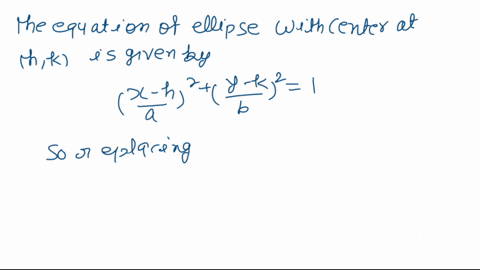 The equation of ellipse with center at
(h,k) is given by
(x-h/a)^2+(y-k/b)^2=1
So replacing